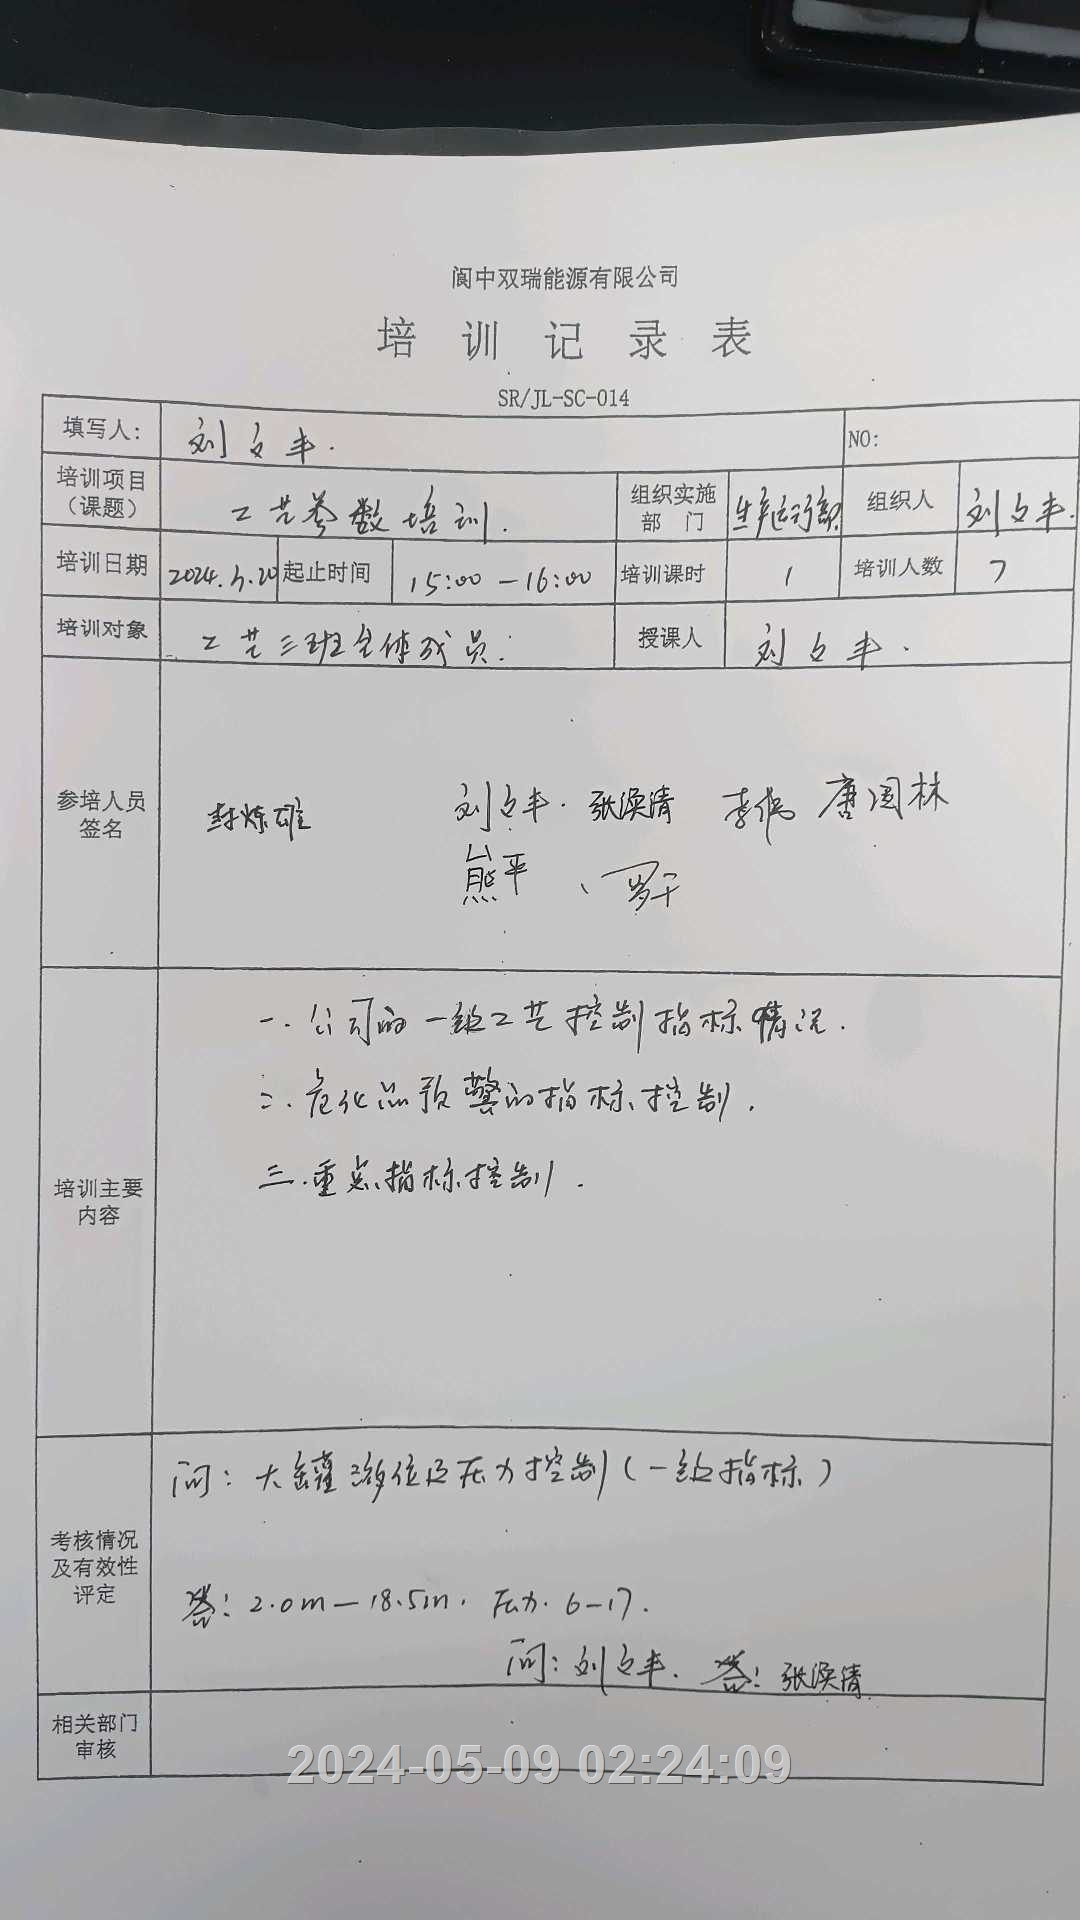 阆中双瑞能源有限公司
培训记录表
SR/JL-SC-014
填写人: 刘文丰. NO:
培训项目(课题) 工艺参数培训. 组织实施部门 生产运行部 组织人 刘文丰.
培训日期 2024.4.20 起止时间 15:00-16:00 培训课时 1 培训人数 7
培训对象 工艺三班全体成员. 授课人 刘文丰.
参培人员签名
封炼雄 刘文丰. 张涣清 李伟 唐国林
熊平、罗干
培训主要内容
一.公司的一级工艺控制指标情况.
二.危化品预警的指标控制.
三.重点指标控制.
考核情况及有效性评定
问: 大罐液位及压力控制(一级指标)
答: 2.0m-18.5m. 压力. 6-17.
问: 刘文丰. 答: 张涣清
相关部门审核
2024-05-09 02:24:09